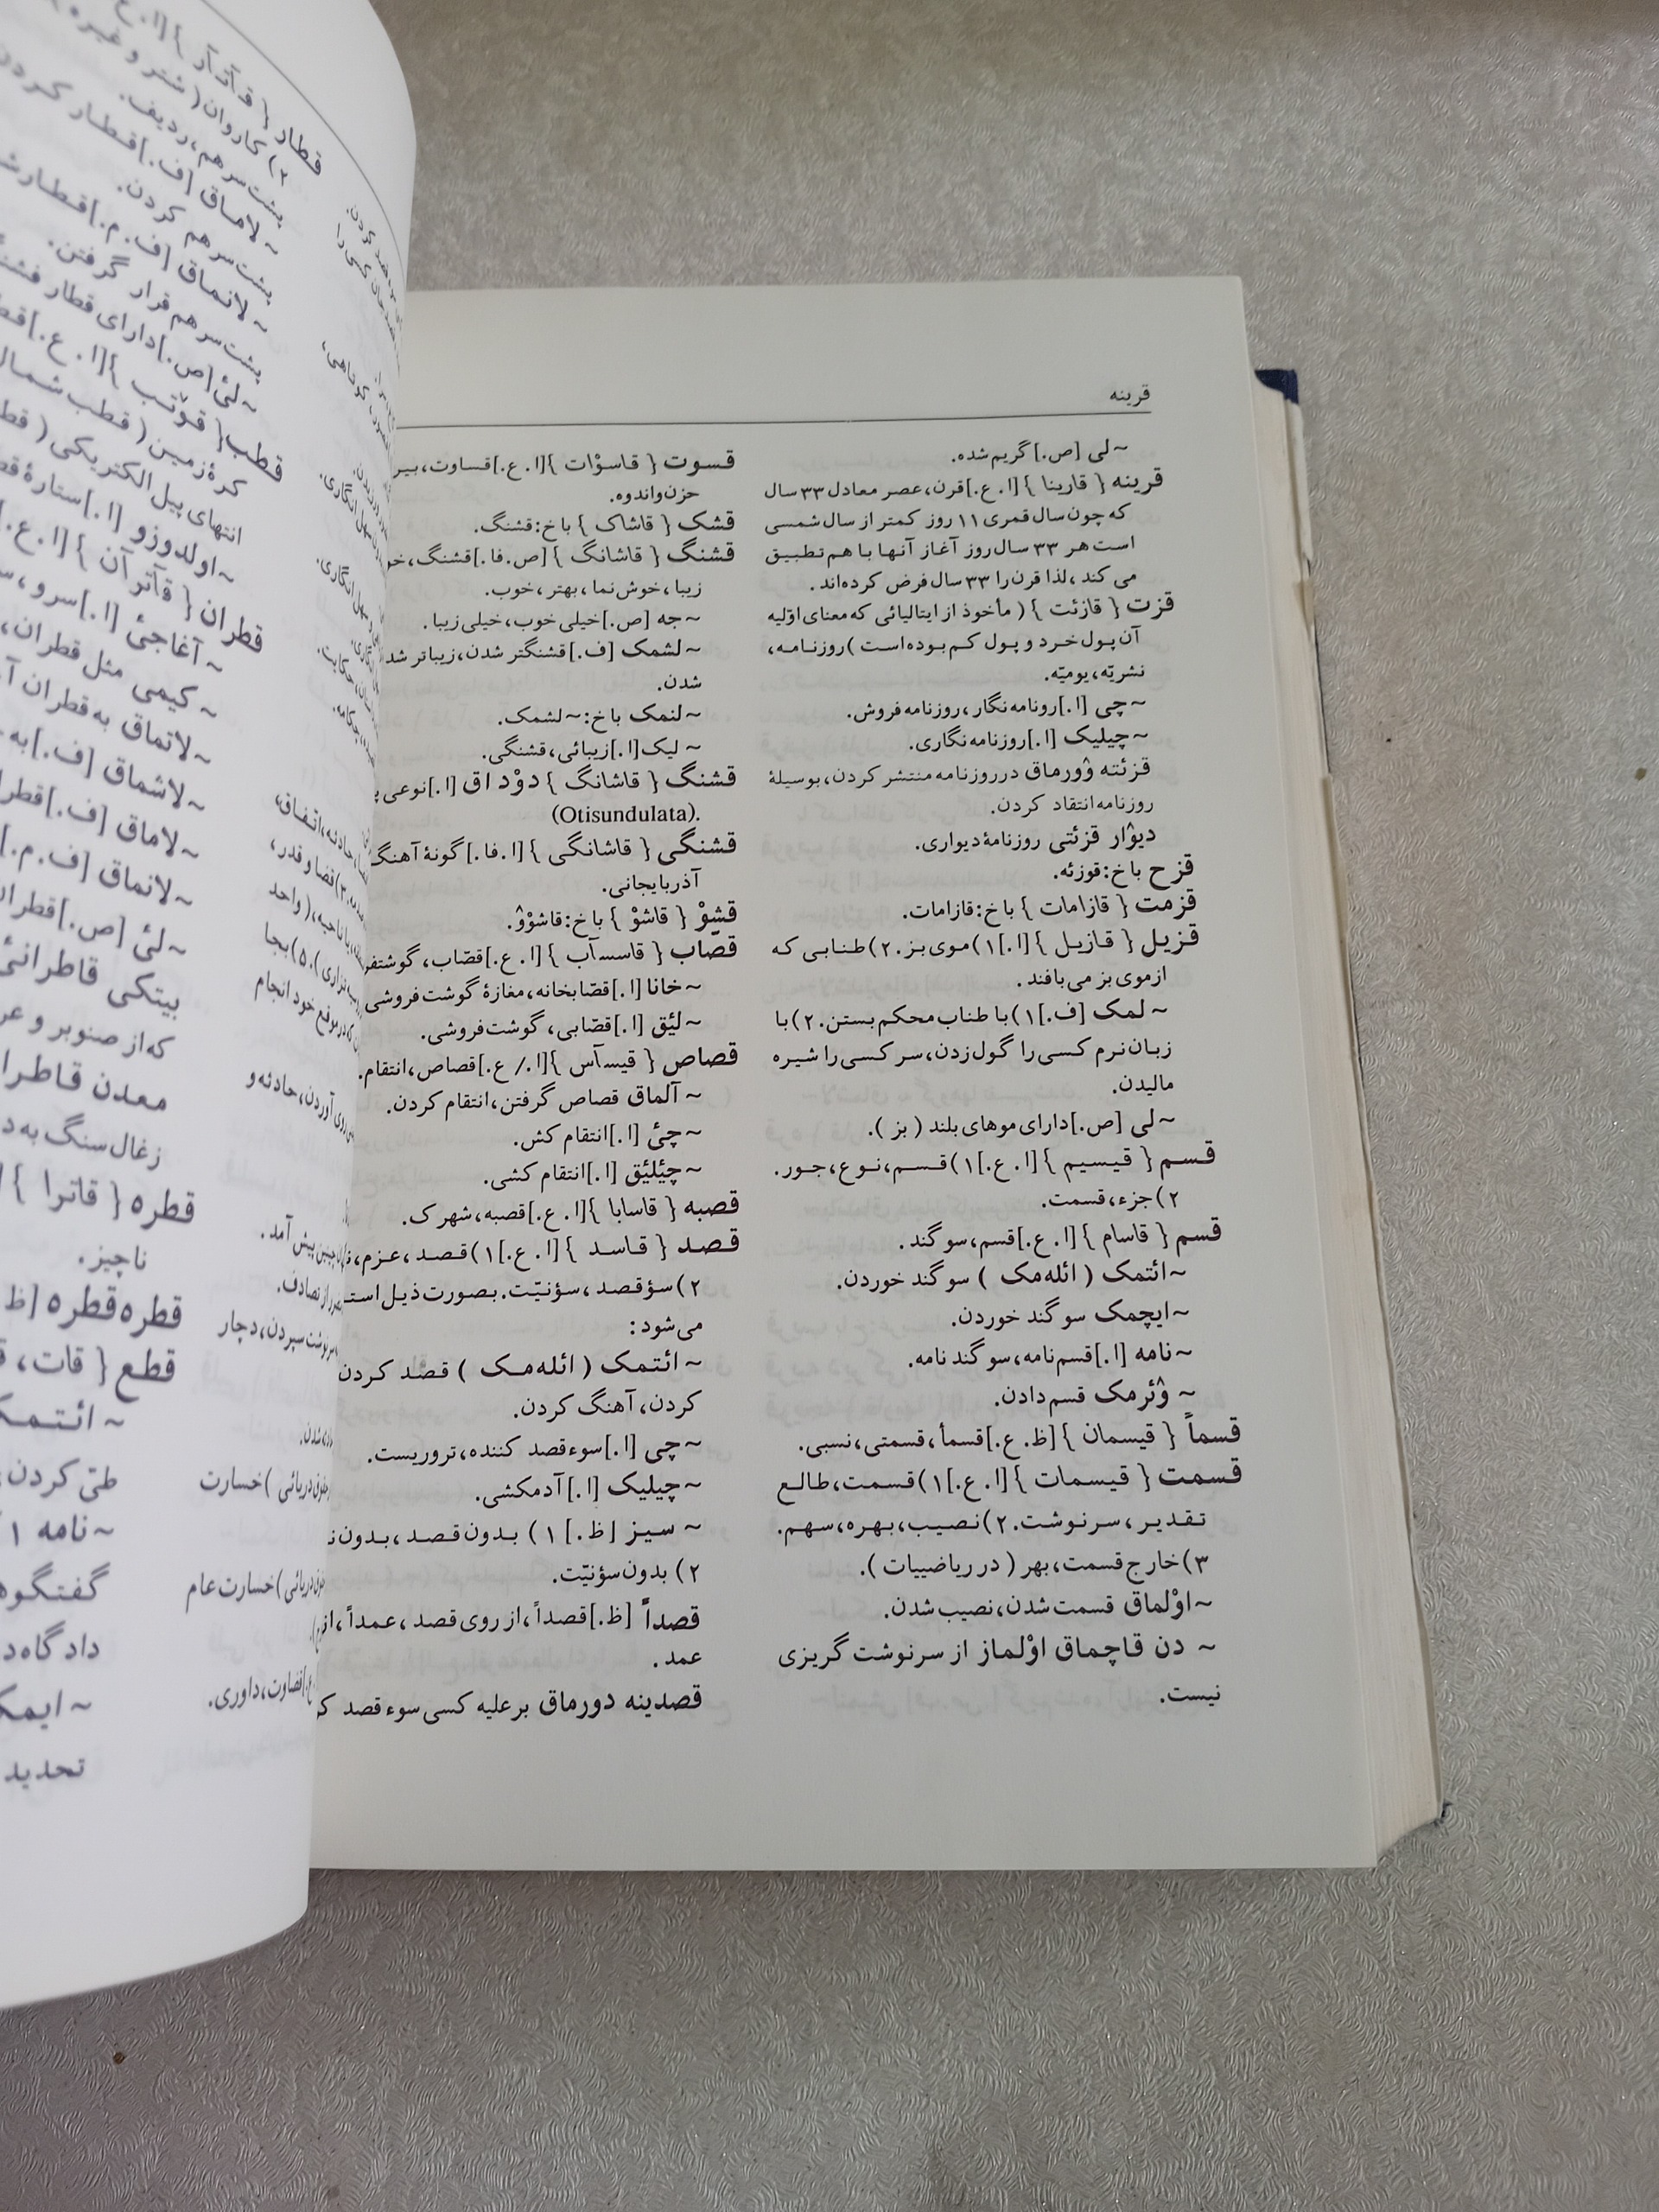 قرینه
~ لی [ص.] گریم شده.
قرینه { قارینا }[ا. ع.] قرن، عصر معادل ۳۳ سال
که چون سال قمری ۱۱ روز کمتر از سال شمسی
است هر ۳۳ سال روز آغاز آنها با هم تطبیق
می کند، لذا قرن را ۳۳ سال فرض کرده‌اند.
قزت { قازئت }( مأخوذ از ایتالیائی که معنای اوّلیه
آن پول خرد و پول کم بوده است )روزنامه،
نشریّه، یومیّه.
~ چی [ا.]رونامه نگار، روزنامه فروش.
~ چیلیک [ا.]روزنامه نگاری.
قزئته وۆرماق در روزنامه منتشر کردن، بوسیلهٔ
روزنامه انتقاد کردن.
دیوار قزئتی روزنامهٔ دیواری.
قزح با خ: قوزئه.
قزمت { قازامات } با خ: قازامات.
قزیل { قازیل }[ا.]۱)موی بز. ۲)طنابی که
از موی بز می بافند.
~ لمک [ف.]۱)با طناب محکم بستن. ۲)با
زبان نرم کسی را گول زدن، سر کسی را شیره
مالیدن.
~ لی [ص.]دارای موهای بلند ( بز ).
قسم { قیسیم }[ا. ع.]۱)قسم، نوع، جور.
۲)جزء، قسمت.
قسم { قاسام }[ا. ع.]قسم، سوگند.
~ ائتمک ( ائله‌مک ) سوگند خوردن.
~ ایچمک سوگند خوردن.
~ نامه [ا.]قسم نامه، سوگند نامه.
~ وئرمک قسم دادن.
قسماً { قیسمان }[ظ. ع.]قسماً، قسمتی، نسبی.
قسمت { قیسمات }[ا. ع.]۱)قسمت، طالع
تقدیر، سرنوشت. ۲)نصیب، بهره، سهم.
۳)خارج قسمت، بهر ( در ریاضییات ).
~ اوْلماق قسمت شدن، نصیب شدن.
~ دن قاچماق اوْلماز از سرنوشت گریزی
نیست.
قسوت { قاسوْات }[ا. ع.]قساوت،
حزن و اندوه.
قشک { قاشاک } با خ: قشنگ.
قشنگ { قاشانگ }[ص. فا.]قشنگ،
زیبا، خوش نما، بهتر، خوب.
~ جه [ص.]خیلی خوب، خیلی زیبا.
~ لشمک [ف.]قشنگتر شدن، زیباتر شد
شدن.
~ لنمک با خ: ~ لشمک.
~ لیک [ا.]زیبائی، قشنگی.
قشنگ { قاشانگ } دوْداق [ا.]نوعی
(Otisundulata).
قشنگی { قاشانگی }[ا. فا.]گونهٔ آهنگ
آذربایجانی.
قشوْ { قاشوْ } با خ: قاشوْوۆ.
قصّاب { قاسسآب }[ا. ع.]قصّاب،
~ خانا [ا.]قصّابخانه، مغازهٔ گوشت فروشی
~ لیٛق [ا.]قصّابی، گوشت فروشی.
قصاص { قیسآس }[ا./ ع.]قصاص، انتقام.
~ آلماق قصاص گرفتن، انتقام کردن.
~ چیٛ [ا.]انتقام کش.
~ چیٛلیٛق [ا.]انتقام کشی.
قصبه { قاسابا }[ا. ع.]قصبه، شهرک.
قصد { قاسد }[ا. ع.]۱)قصد، عزم،
۲)سؤقصد، سؤنیّت. بصورت ذیل
می شود:
~ ائتمک ( ائله‌مک ) قصد کردن
کردن، آهنگ کردن.
~ چی [ا.]سوء قصد کننده، تروریست.
~ چیلیک [ا.]آدمکشی.
~ سیز [ظ.]۱) بدون قصد، بدون
۲) بدون سؤنیّت.
قصداً [ظ.]قصداً، از روی قصد، عمداً،
عمد.
قصدینه دورماق بر علیه کسی سوء قصد
قطار { قآتآر }[ا. ع
۲)کاروان( شتر و غیره
پشت سر هم، ردیف.
~ لاماق [ف.]قطار کردن
پشت سر هم کردن.
~ لانماق [ف. م.]قطار
پشت سر هم قرار گرفتن.
~ لیٛ [ص.]دارای قطار
قطب { قوْتب }[ا. ع.]
کرهٔ زمین( قطب شمال
انتهای پیل الکتریکی (
~ اولدوزو [ا.]ستارهٔ
قطران { قآترآن }[ا. ع.]
~ آغاجیٛ [ا.]سرو،
~ کیمی مثل قطران،
~ لاتماق به قطران
~ لاشماق [ف.]به
~ لاماق [ف.]
~ لانماق [ف. م.]
~ لیٛ [ص.]
بیتکی قاطرانیٛ
که از صنوبر و
معدن
زغال سنگ به
قطره { قاترا }
ناچیز.
قطره قطره [ظ
قطع { قات،
~ ائتمک
طیّ کردن
~ نامه
دادگاه
تحدید